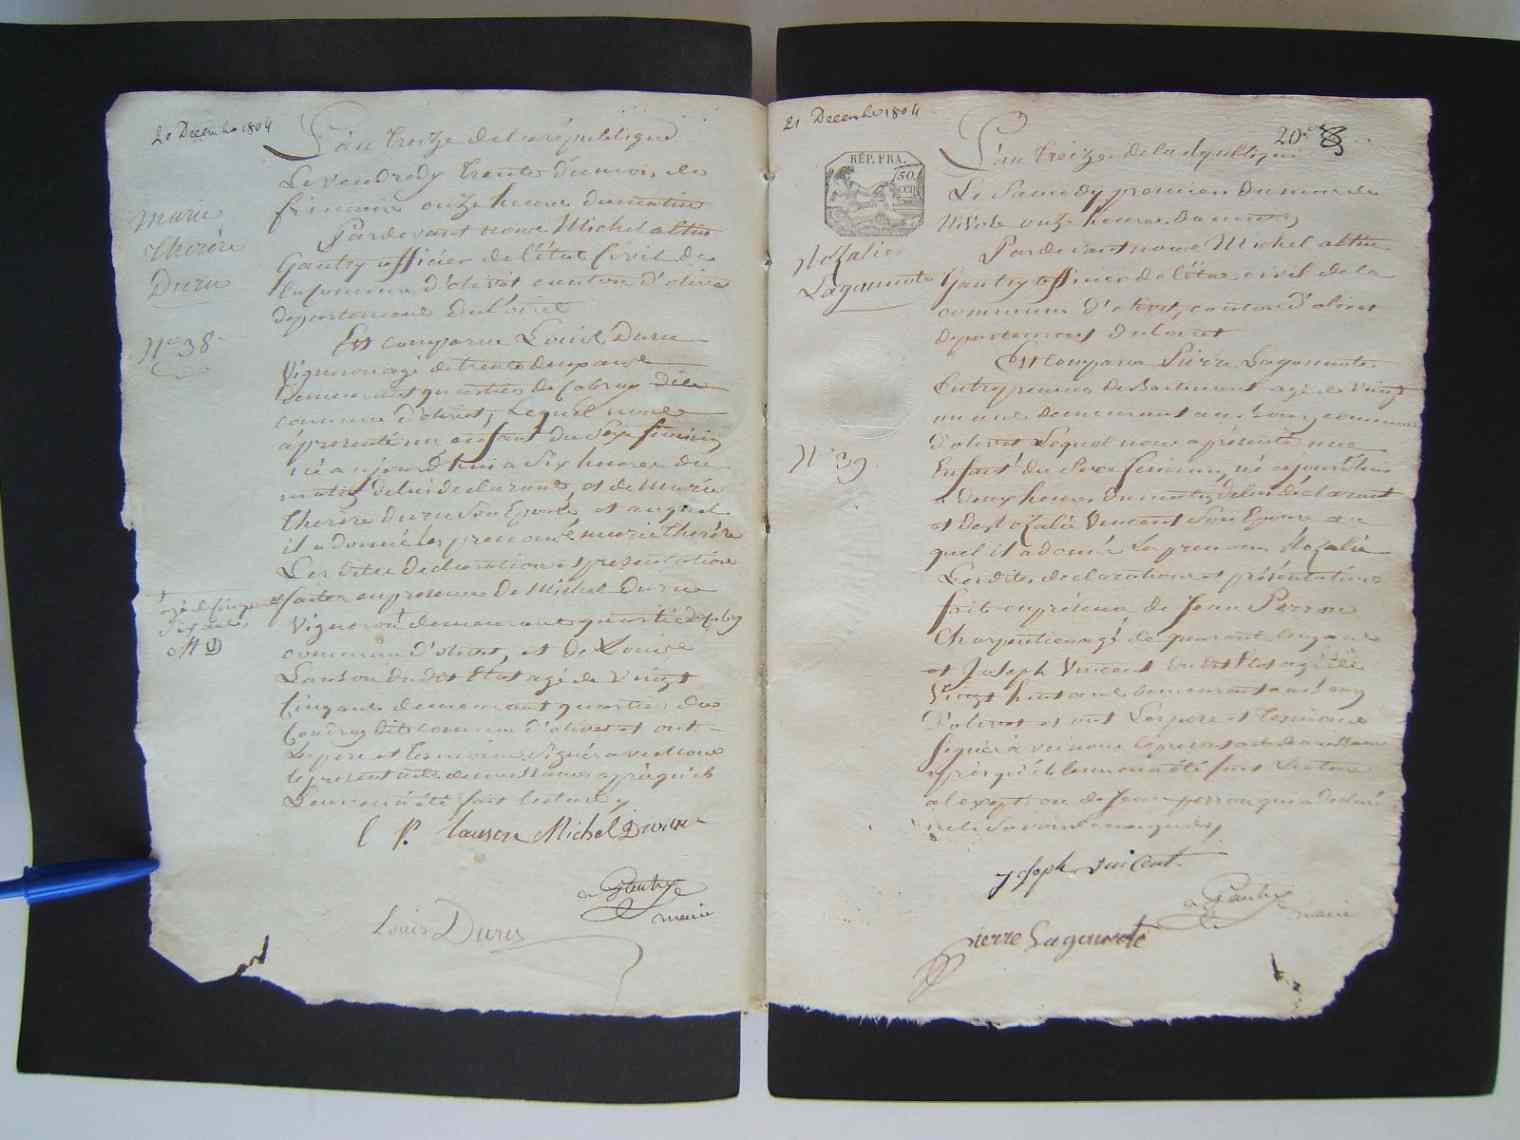 20 Decembre 1804
L'an treize de la république
Le vendredy trente du mois de
frimaire onze heure du matin
Marie
Thérère
Duru
Pardevant nous Michel
Gautry officier de l'état Civil de
la commune d'olivet canton d'olivet
departement du Loiret
N° 38
Est comparu Louis Duru
Vigneron agé de trente deux ans
demeurant quartier de
commune d'olivet, Lequel nous
a présenté un enfant du Sexe féminin
né aujourd'hui a Six heures du
matin de lui déclarant, et de Marie
therère Duru Son Epouse, et auquel
il a donné les prenoms marie therère
Les dite declaration et presentation
faites en presence de Michel Duru
agé de
M D
Vigneron demeurant quartier
commune d'olivet, et de Louis
Lanson dudit Etat agé de vingt
Cinq ans demeurant quartier du
Coudray dite commune d'olivet et ont
Le pere et temoins signés avec nous
le present acte de naissance après qu'il
Leur en a été fait lecture
L P. lanson Michel Duru
Gautry
maire
Louis Duru
21 Decembre 1804
20e
RÉP. FRA.
50.
CEN
L'an treize de la république
Le Samedy premier du mois de
Nivose onze heure du matin
Rozalie
Lagounote
Pardevant nous Michel
Gautry officier de l'état civil de la
commune d'olivet, canton d'olivet
departement du Loiret
Est Comparu Pierre Lagounote
Entrepreneur de Bastiment agé de vingt
un ans demeurant au bourg commune
N° 39
d'olivet Lequel nous a présenté une
Enfant du Sexe féminin, né aujourd'hui
a deux heures du matin de lui déclarant
et de Rozalie Vincent Son Epouse au
quel il a donné Les prenoms Rozalie
Les dites declaration et présentation
fait en présence de Jean Perron
Charpentier agé de quarant cinq ans
et Joseph Vincent dudit Etat agé de
Vingt huit ans demeurant au bourg
D'olivet et ont Les pere et temoins
Signés avec nous le present acte de naissance
après qu'il leur en a été fait Lecture
a l'exeption de Jean perron qui a declaré
ne le Savoir
Joseph vincent
Gautry
maire
Pierre Lagounote